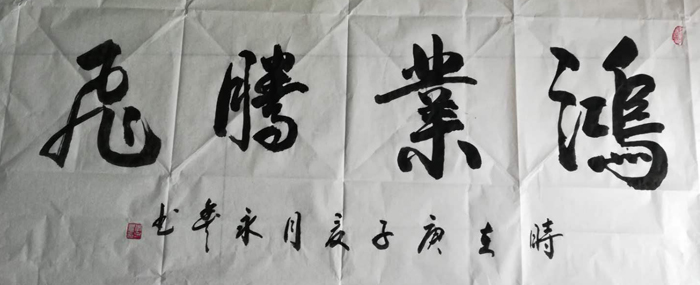 鴻業騰飛
時在庚子夏月永季书